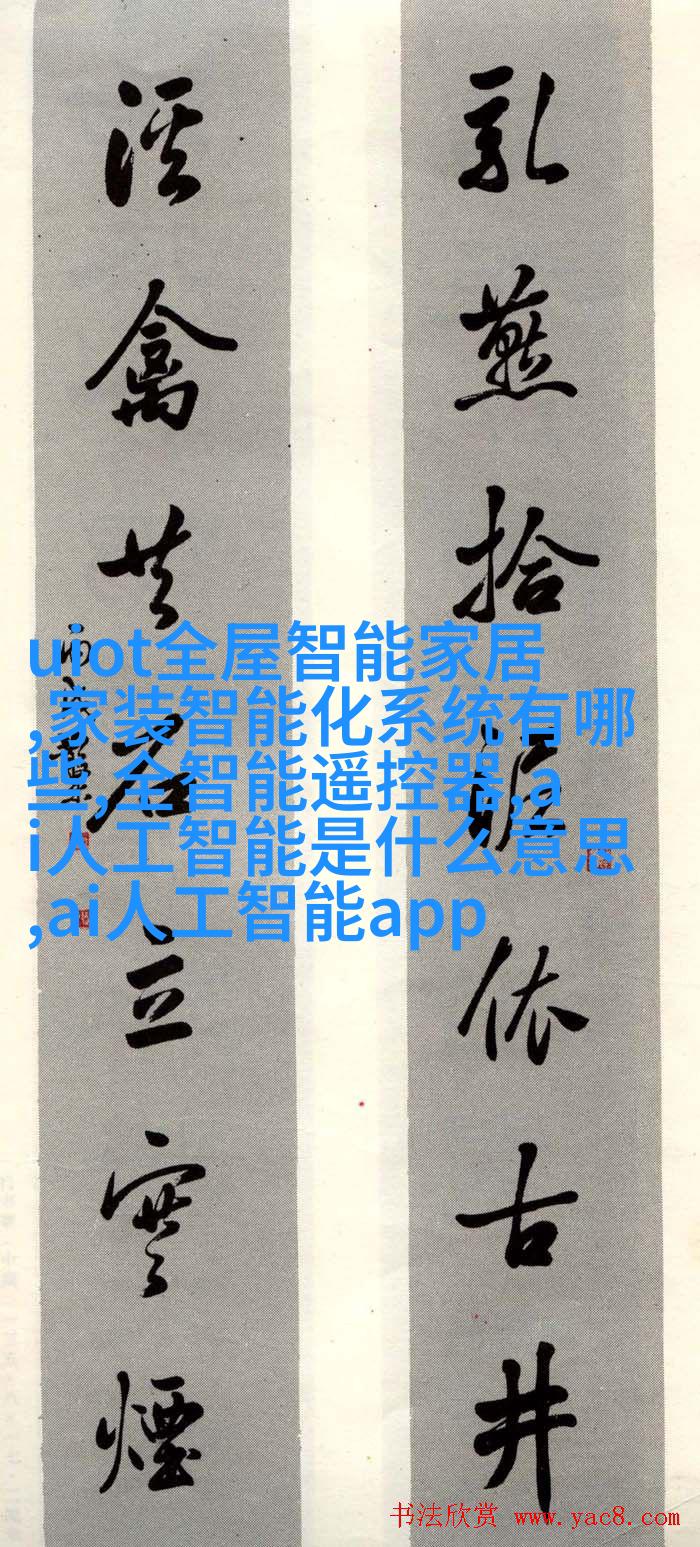 乳燕拾依古井
溪禽共石立寒煙
uiot全屋智能家居
,家装智能化系统有哪
些,全智能遥控器,a
i人工智能是什么意思
,ai人工智能app
书法欣赏 www.yac8.com